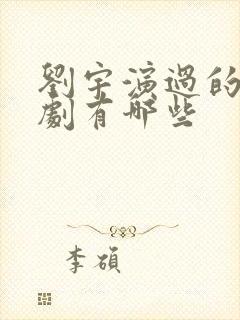 劉宇演過的
劇有哪些
李碩